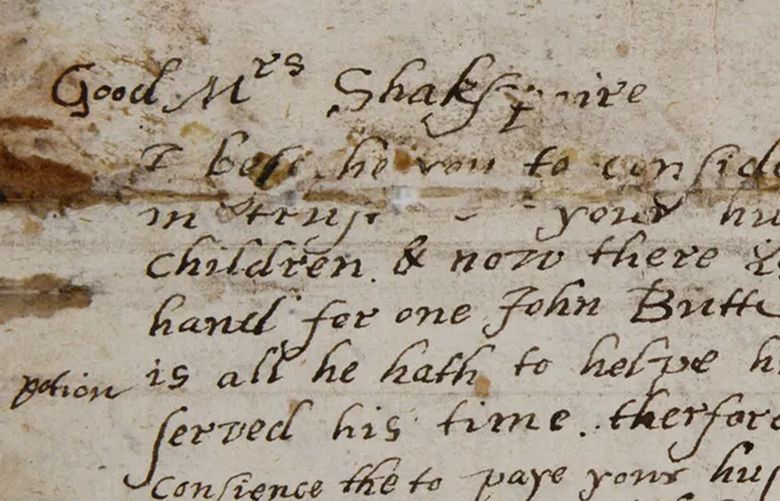 Good Mrs Shakspaire
I beseche you to conside
in trust your hu
children & now there
hand for one John Butte
potion is all he hath to helpe h
served his time. therfore
Consience the to paye your hus